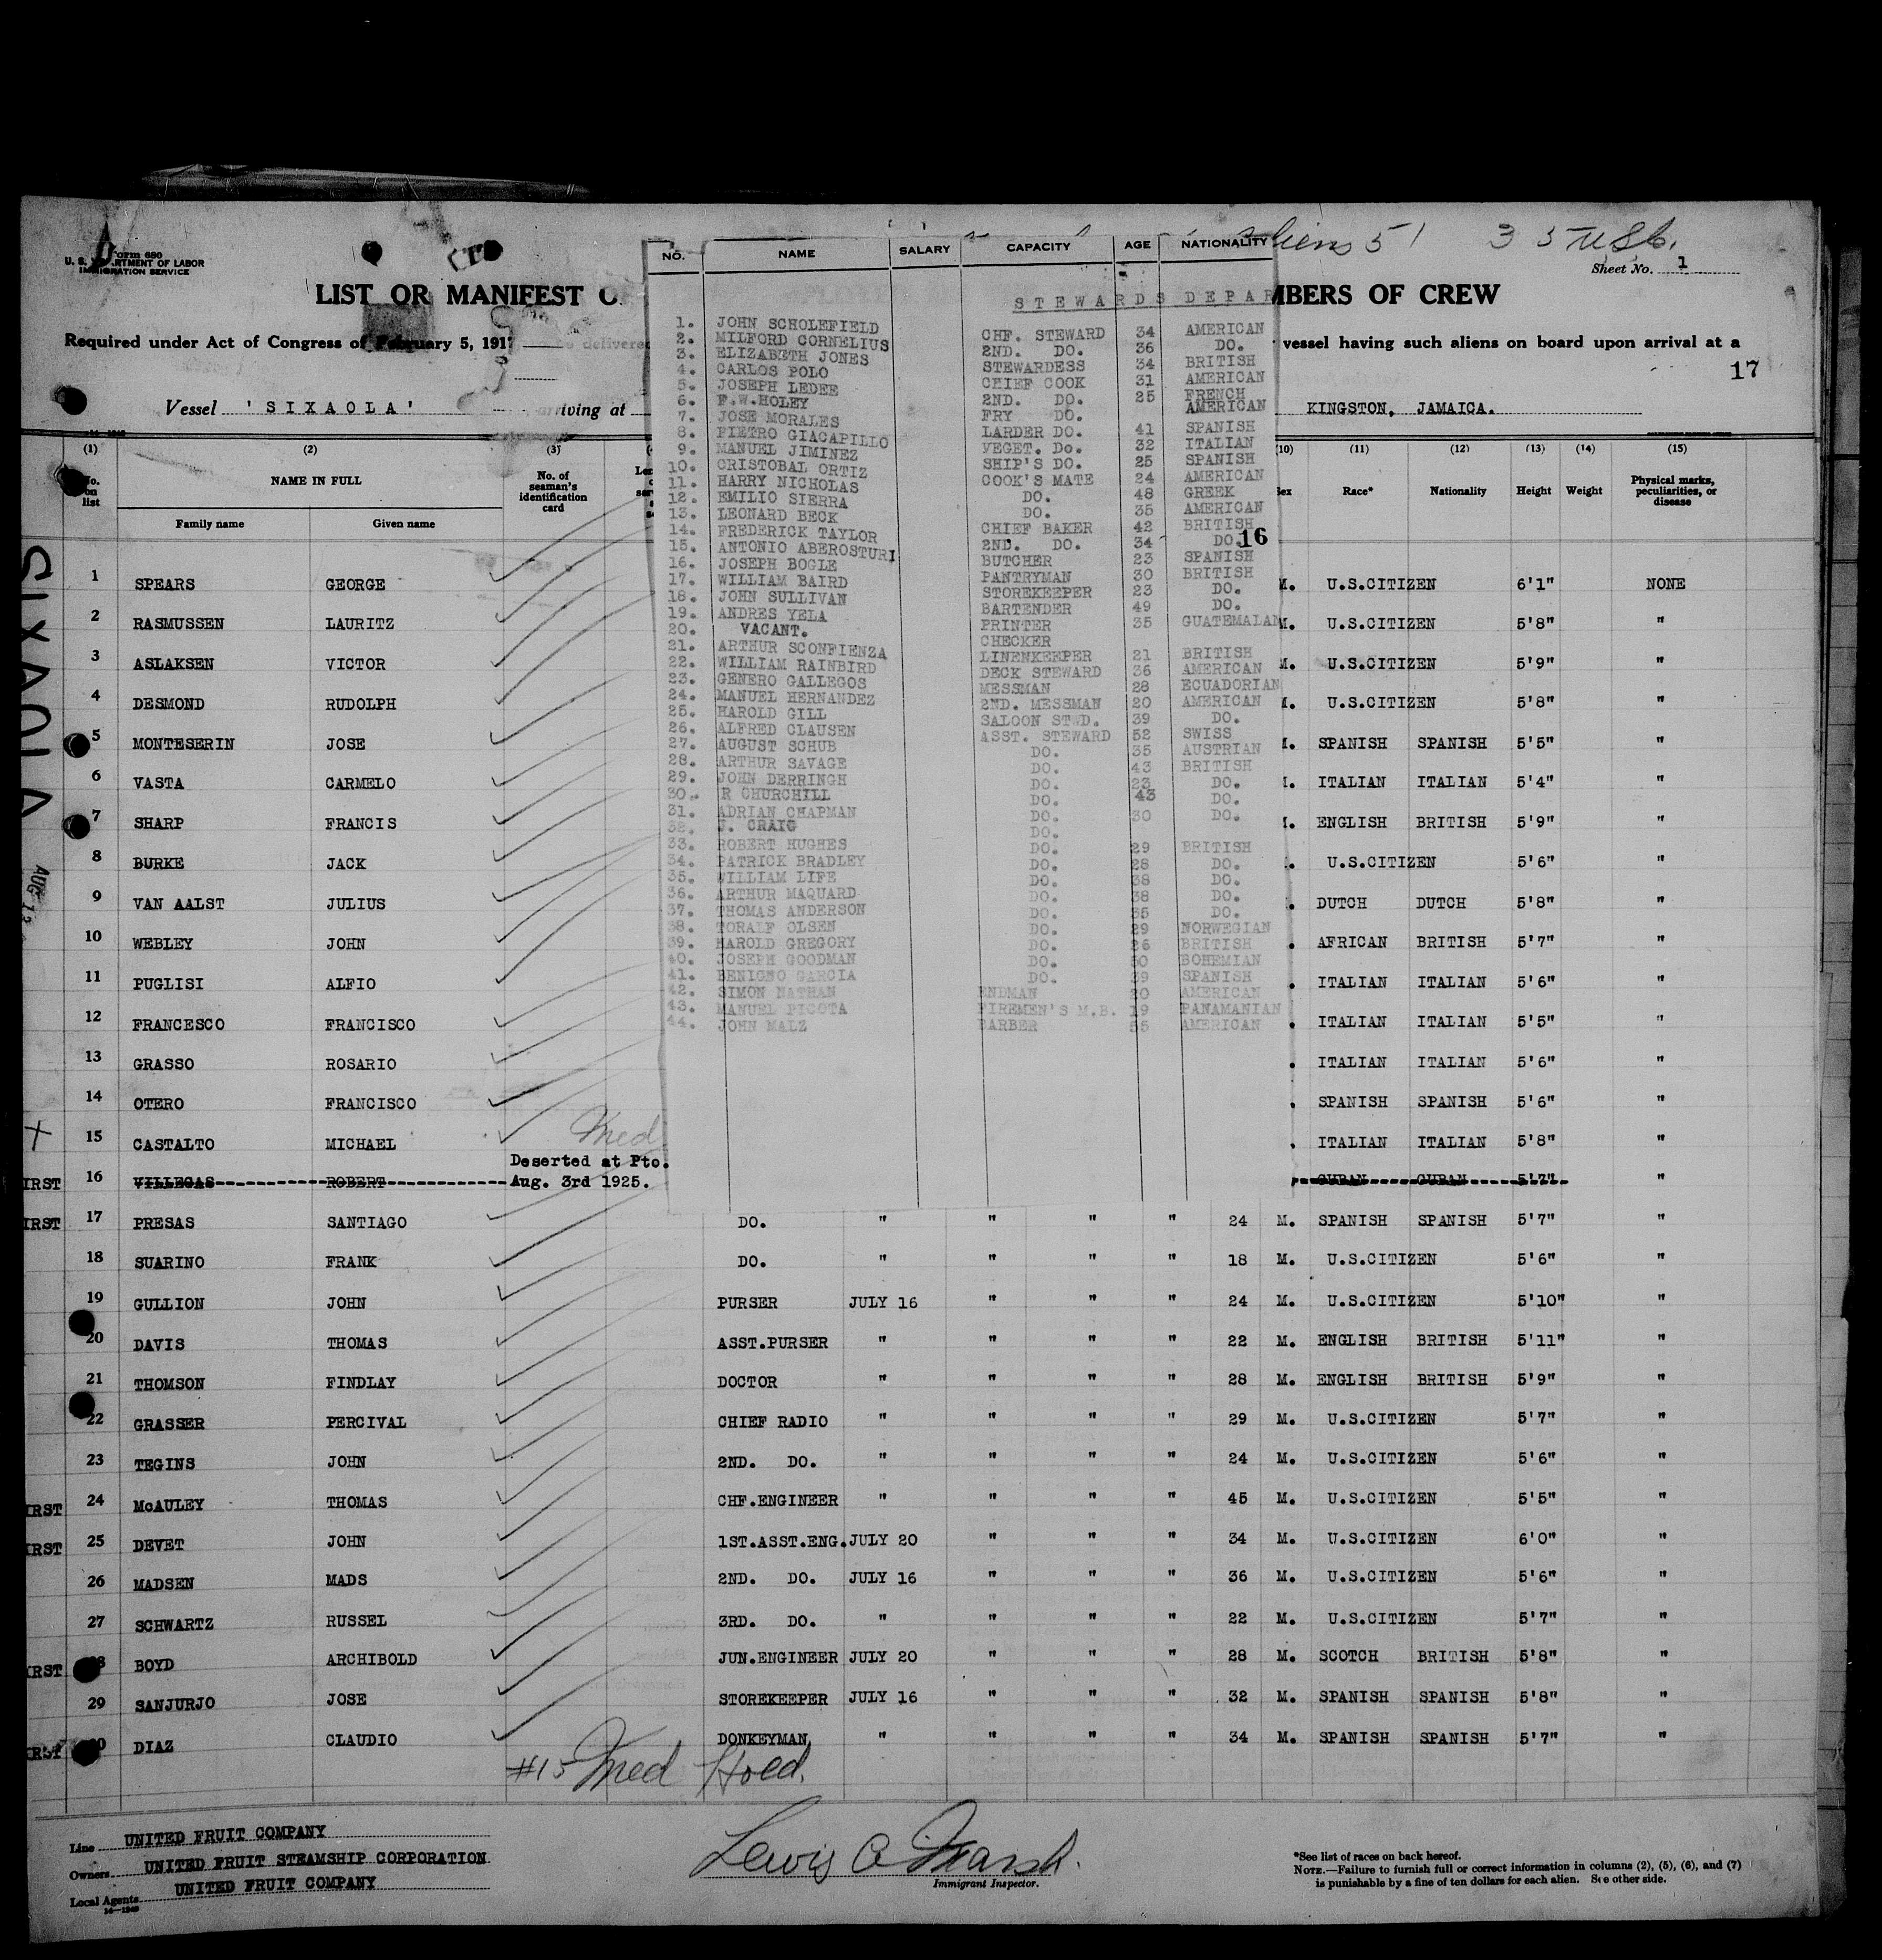 Aliens 51 35 USC.
Form 680
U. S. DEPARTMENT OF LABOR
IMMIGRATION SERVICE
Sheet No. 1
LIST OR MANIFEST O MBERS OF CREW
Required under Act of Congress of February 5, 191 delivered vessel having such aliens on board upon arrival at a
17
Vessel 'SIXAOLA' arriving at KINGSTON, JAMAICA.
NO. NAME SALARY CAPACITY AGE NATIONALITY
STEWARDS DEPAR
1. JOHN SCHOLEFIELD CHF. STEWARD 34 AMERICAN
2. MILFORD CORNELIUS 2ND. DO. 36 DO.
3. ELIZABETH JONES STEWARDESS 34 BRITISH
4. CARLOS POLO CHIEF COOK 31 AMERICAN
5. JOSEPH LEDEE 2ND. DO. 25 FRENCH
6. F.W.HOLEY FRY DO. AMERICAN
7. JOSE MORALES LARDER DO. 41 SPANISH
8. PIETRO GIACAPILLO VEGET. Do. 32 ITALIAN
9. MANUEL JIMINEZ SHIP'S DO. 25 SPANISH
10. CRISTOBAL ORTIZ COOK'S MATE 24 AMERICAN
11. HARRY NICHOLAS DO. 48 GREEK
12. EMILIO SIERRA DO. 35 AMERICAN
13. LEONARD BECK CHIEF BAKER 42 BRITISH
14. FREDERICK TAYLOR 2ND. DO. 34 DO. 16
15. ANTONIO ABEROSTURI BUTCHER 23 SPANISH
16. JOSEPH BOGLE PANTRYMAN 30 BRITISH
17. WILLIAM BAIRD STOREKEEPER 23 DO.
18. JOHN SULLIVAN BARTENDER 49 DO.
19. ANDRES YELA PRINTER 35 GUATEMALAN
20. VACANT. CHECKER
21. ARTHUR SCONFIENZA LINENKEEPER 21 BRITISH
22. WILLIAM RAINBIRD DECK STEWARD 36 AMERICAN
23. GENERO GALLEGOS MESSMAN 28 ECUADORIAN
24. MANUEL HERNANDEZ 2ND. MESSMAN 20 AMERICAN
25. HAROLD GILL SALOON STWD. 39 DO.
26. ALFRED CLAUSEN ASST. STEWARD 52 SWISS
27. AUGUST SCHUB DO. 35 AUSTRIAN
28. ARTHUR SAVAGE DO. 43 BRITISH
29. JOHN DERRINGH DO. 23 DO.
30. R CHURCHILL DO. 43 DO.
31. ADRIAN CHAPMAN DO. 30 DO.
32. J. CRAIG DO.
33. ROBERT HUGHES DO. 29 BRITISH
34. PATRICK BRADLEY DO. 28 DO.
35. WILLIAM LIFE DO. 38 DO.
36. ARTHUR MAQUARD DO. 38 DO.
37. THOMAS ANDERSON DO. 35 DO.
38. TORALF OLSEN DO. 29 NORWEGIAN
39. HAROLD GREGORY DO. 26 BRITISH
40. JOSEPH GOODMAN DO. 50 BOHEMIAN
41. BENIGNO GARCIA DO. 39 SPANISH
42. SIMON NATHAN ENDMAN 20 AMERICAN
43. MANUEL PICOTA FIREMEN'S M.B. 19 PANAMANIAN
44. JOHN MALZ BARBER 55 AMERICAN
(1) (2) (3) (10) (11) (12) (13) (14) (15)
No. on list NAME IN FULL No. of seaman's identification card Sex Race* Nationality Height Weight Physical marks, peculiarities, or disease
Family name Given name
SIXAOLA
AUG 13
1 SPEARS GEORGE M. U.S.CITIZEN 6'1" NONE
2 RASMUSSEN LAURITZ M. U.S.CITIZEN 5'8" "
3 ASLAKSEN VICTOR M. U.S.CITIZEN 5'9" "
4 DESMOND RUDOLPH M. U.S.CITIZEN 5'8" "
5 MONTESERIN JOSE M. SPANISH SPANISH 5'5" "
6 VASTA CARMELO M. ITALIAN ITALIAN 5'4" "
7 SHARP FRANCIS M. ENGLISH BRITISH 5'9" "
8 BURKE JACK . U.S.CITIZEN 5'6" "
9 VAN AALST JULIUS . DUTCH DUTCH 5'8" "
10 WEBLEY JOHN . AFRICAN BRITISH 5'7" "
11 PUGLISI ALFIO . ITALIAN ITALIAN 5'6" "
12 FRANCESCO FRANCISCO . ITALIAN ITALIAN 5'5" "
13 GRASSO ROSARIO . ITALIAN ITALIAN 5'6" "
14 OTERO FRANCISCO . SPANISH SPANISH 5'6" "
+ 15 CASTALTO MICHAEL Med . ITALIAN ITALIAN 5'8" "
Deserted at Pto.
IRST 16 VILLEGAS ROBERT Aug. 3rd 1925. CUBAN CUBAN 5'7" "
IRST 17 PRESAS SANTIAGO DO. " " " " 24 M. SPANISH SPANISH 5'7" "
18 SUARINO FRANK DO. " " " " 18 M. U.S.CITIZEN 5'6" "
19 GULLION JOHN PURSER JULY 16 " " " 24 M. U.S.CITIZEN 5'10" "
20 DAVIS THOMAS ASST.PURSER " " " " 22 M. ENGLISH BRITISH 5'11" "
21 THOMSON FINDLAY DOCTOR " " " " 28 M. ENGLISH BRITISH 5'9" "
22 GRASSER PERCIVAL CHIEF RADIO " " " " 29 M. U.S.CITIZEN 5'7" "
23 TEGINS JOHN 2ND. DO. " " " " 24 M. U.S.CITIZEN 5'6" "
IRST 24 McAULEY THOMAS CHF.ENGINEER " " " " 45 M. U.S.CITIZEN 5'5" "
IRST 25 DEVET JOHN 1ST.ASST.ENG. JULY 20 " " " 34 M. U.S.CITIZEN 6'0" "
26 MADSEN MADS 2ND. DO. JULY 16 " " " 36 M. U.S.CITIZEN 5'6" "
27 SCHWARTZ RUSSEL 3RD. DO. " " " " 22 M. U.S.CITIZEN 5'7" "
IRST 28 BOYD ARCHIBOLD JUN.ENGINEER JULY 20 " " " 28 M. SCOTCH BRITISH 5'8" "
29 SANJURJO JOSE STOREKEEPER JULY 16 " " " 32 M. SPANISH SPANISH 5'8" "
IRST 30 DIAZ CLAUDIO DONKEYMAN " " " " 34 M. SPANISH SPANISH 5'7" "
#15 Med Hold.
Line UNITED FRUIT COMPANY
Owners UNITED FRUIT STEAMSHIP CORPORATION
Local Agents UNITED FRUIT COMPANY
14—1949
Lewis C Marsh.
Immigrant Inspector.
*See list of races on back hereof.
NOTE.—Failure to furnish full or correct information in columns (2), (5), (6), and (7)
is punishable by a fine of ten dollars for each alien. See other side.